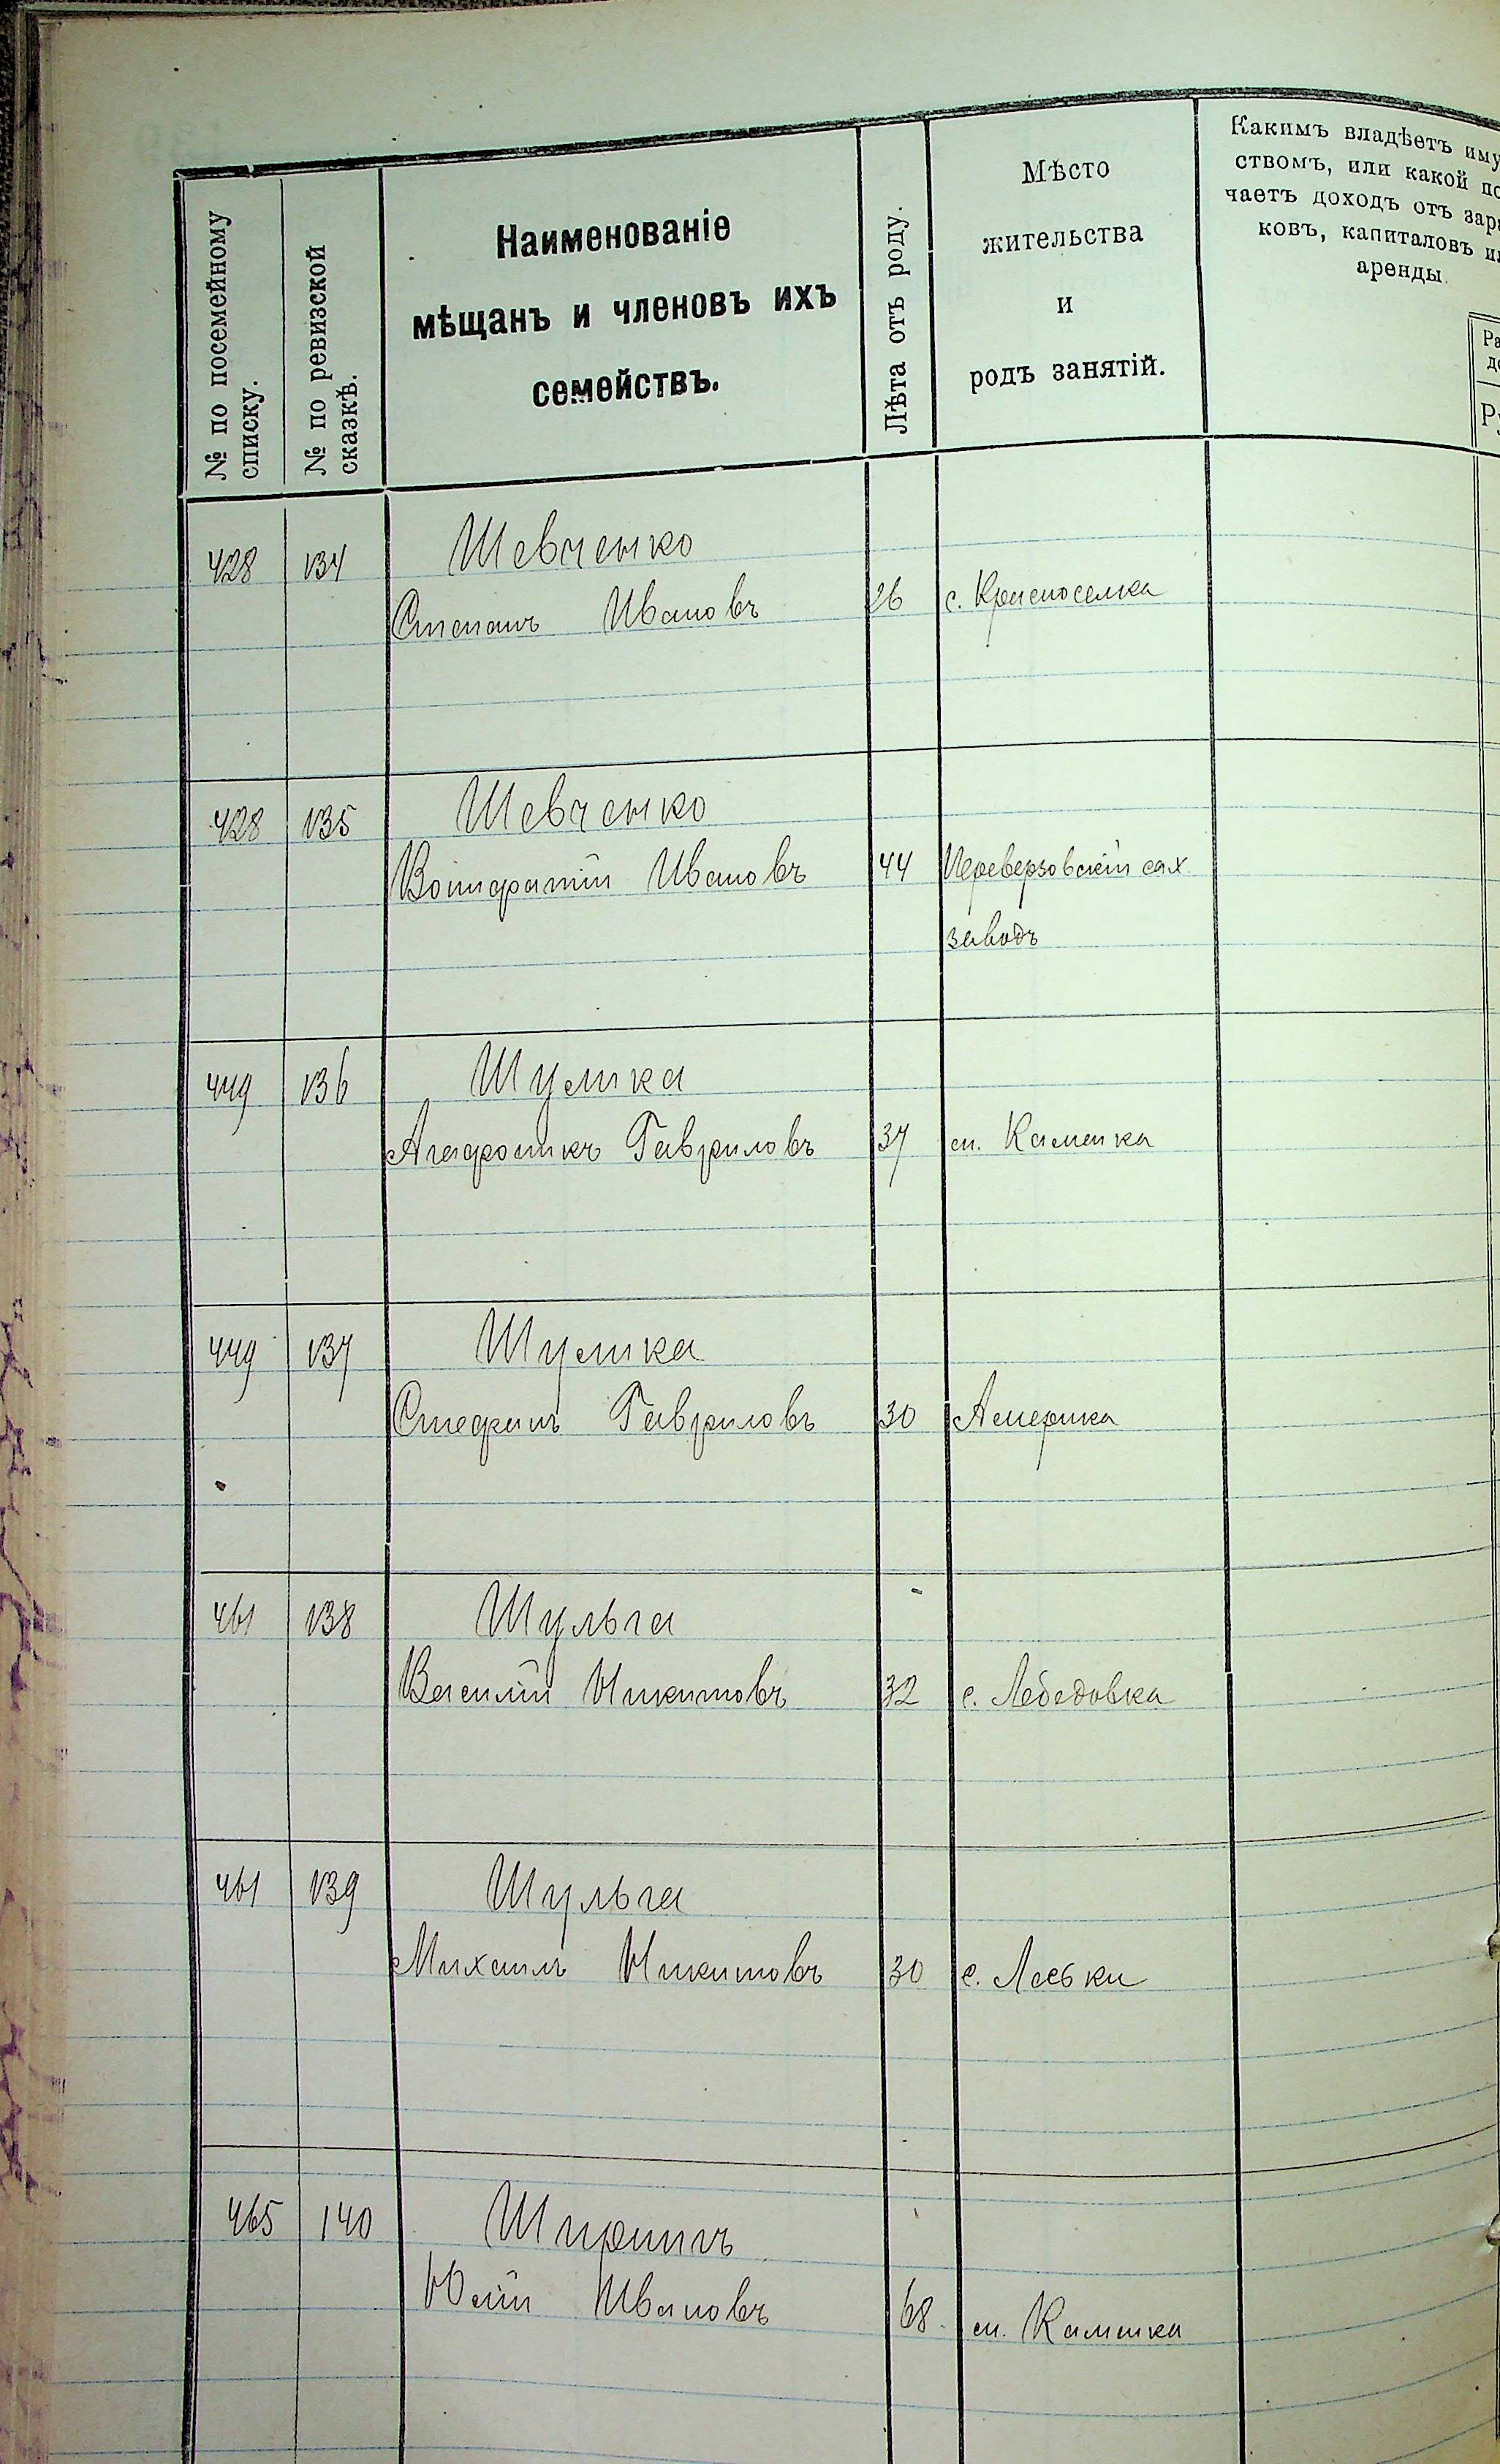 № по посемейному списку.
№ по ревизской сказкѣ.
Наименованіе
мѣщанъ и членовъ ихъ
семействъ.
Лѣта отъ роду.
Мѣсто
жительства
и
родъ занятій.
Какимъ владѣетъ иму
ствомъ, или какой по
чаетъ доходъ отъ зара
ковъ, капиталовъ ил
аренды.
428 134 Шевченко
Степанъ Ивановъ 26 с. Красноселка
428 135 Шевченко
Ивановъ 44 Переверзовскій сах.
заводъ
449 136 Шулика
Агафоникъ Гавриловъ 37 м. Каменка
449 137 Шулика
Стефанъ Гавриловъ 30 Америка
461 138 Шульга
Василій Никитовъ 32 с. Лебедовка
461 139 Шульга
Михаилъ Никитовъ 30 с. Леськи
465 140
Ивановъ 68 м. Каменка